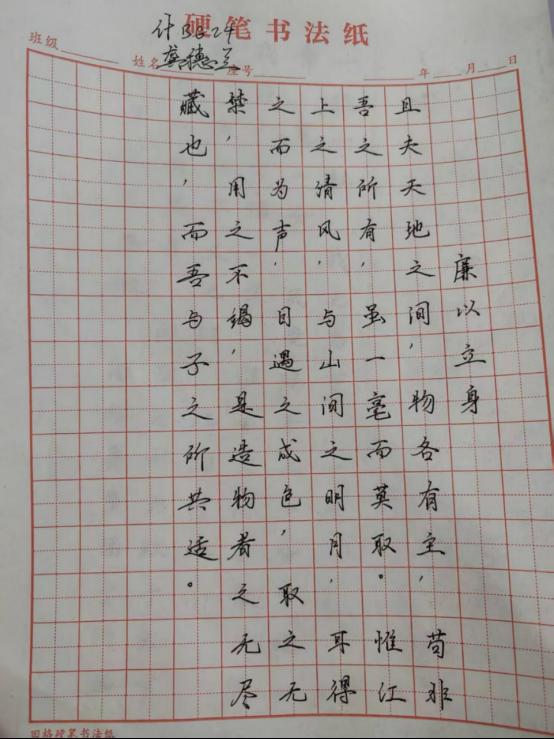 硬笔书法纸
班级 姓名 龚德兰 座号 年 月 日
廉以立身
且夫天地之间，物各有主，苟非
吾之所有，虽一毫而莫取。惟江
上之清风，与山间之明月，耳得
之而为声，目遇之成色，取之无
禁，用之不竭，是造物者之无尽
藏也，而吾与子之所共适。